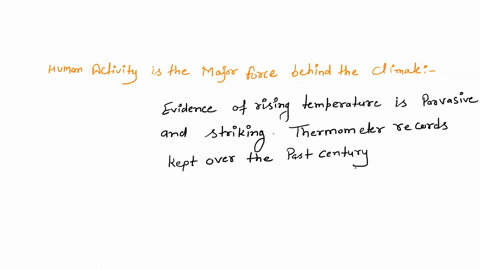 Human Activity is the Major force behind the Climate:-
Evidence of rising temperature is Parvasive
and striking. Thermometer records
kept over the Past century